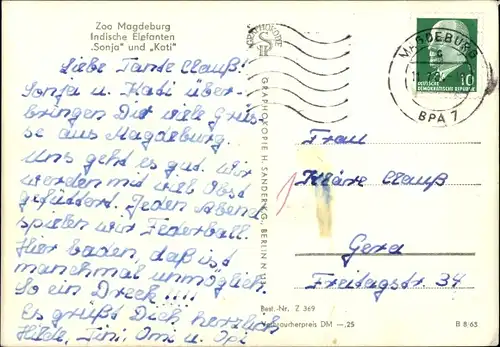 Zoo Magdeburg
Indische Elefanten
„Sonja" und „Kati"
Liebe Tante Clauß!
Sonja u. Kati über-
bringen Dir viele Grüs-
se aus Magdeburg.
Uns geht es gut. Wir
werden mit viel Obst
gefüttert. Jeden Abend
spielen wir Federball.
Hier baden, daß ist
manchmal unmöglich.
So ein Dreck!!!!
Es grüßt Dich herzlich
Heide, Jini, Omi u. Opi
GRAPHOKOPIE H. SANDER KG., BERLIN N
MAGDEBURG
BPA 7
10
DEUTSCHE
DEMOKRATISCHE REPUBLIK
Frau
Kläre Clauß
Gera
Freitagstr. 34
Best.-Nr. Z 369
Verbraucherpreis DM -,25
B 8/65